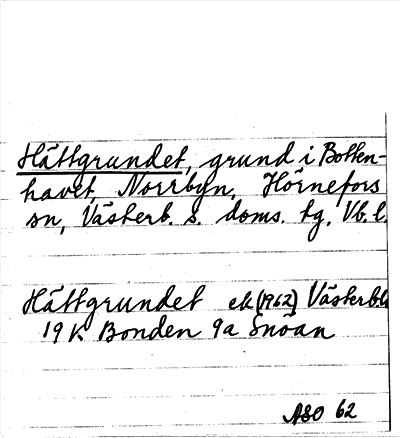 Hättgrundet, grund i Botten-
havet, Norrbyn, Hörnefors
sn, Västerb. s. doms. tg, Vb. l.
Hättgrundet ek (1962) Västerb.
19 K Bonden 9a Snöan
ASO 62